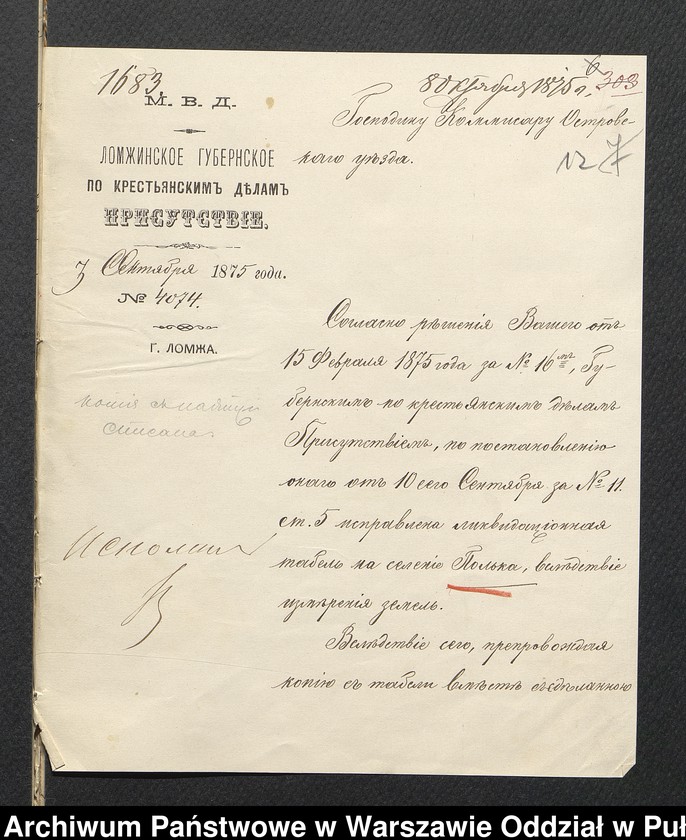 1683.
8 октября 1875 г. 303
М. В. Д.
ЛОМЖИНСКОЕ ГУБЕРНСКОЕ
ПО КРЕСТЬЯНСКИМЪ ДѢЛАМЪ
ПРИСУТСТВІЕ.
Сентября 1875 года.
№ 4074.
Г. ЛОМЖА.
копія съ
списана.
Господину Коммисару Островс-
каго уѣзда.
№ 7
Согласно рѣшенія Вашего отъ
15 Февраля 1875 года за № 16, Гу-
бернскимъ по крестьянскимъ дѣламъ
Присутствіемъ, по постановленію
онаго отъ 10 сего Сентября за № 11.
ст. 5 исправлена ликвидаціонная
табель на селеніе Полька, вслѣдствіе
измѣренія земель.
Вслѣдствіе сего, препровождая
копію съ табели вмѣстѣ съ сдѣланною
Archiwum Państwowe w Warszawie Oddział w Puł